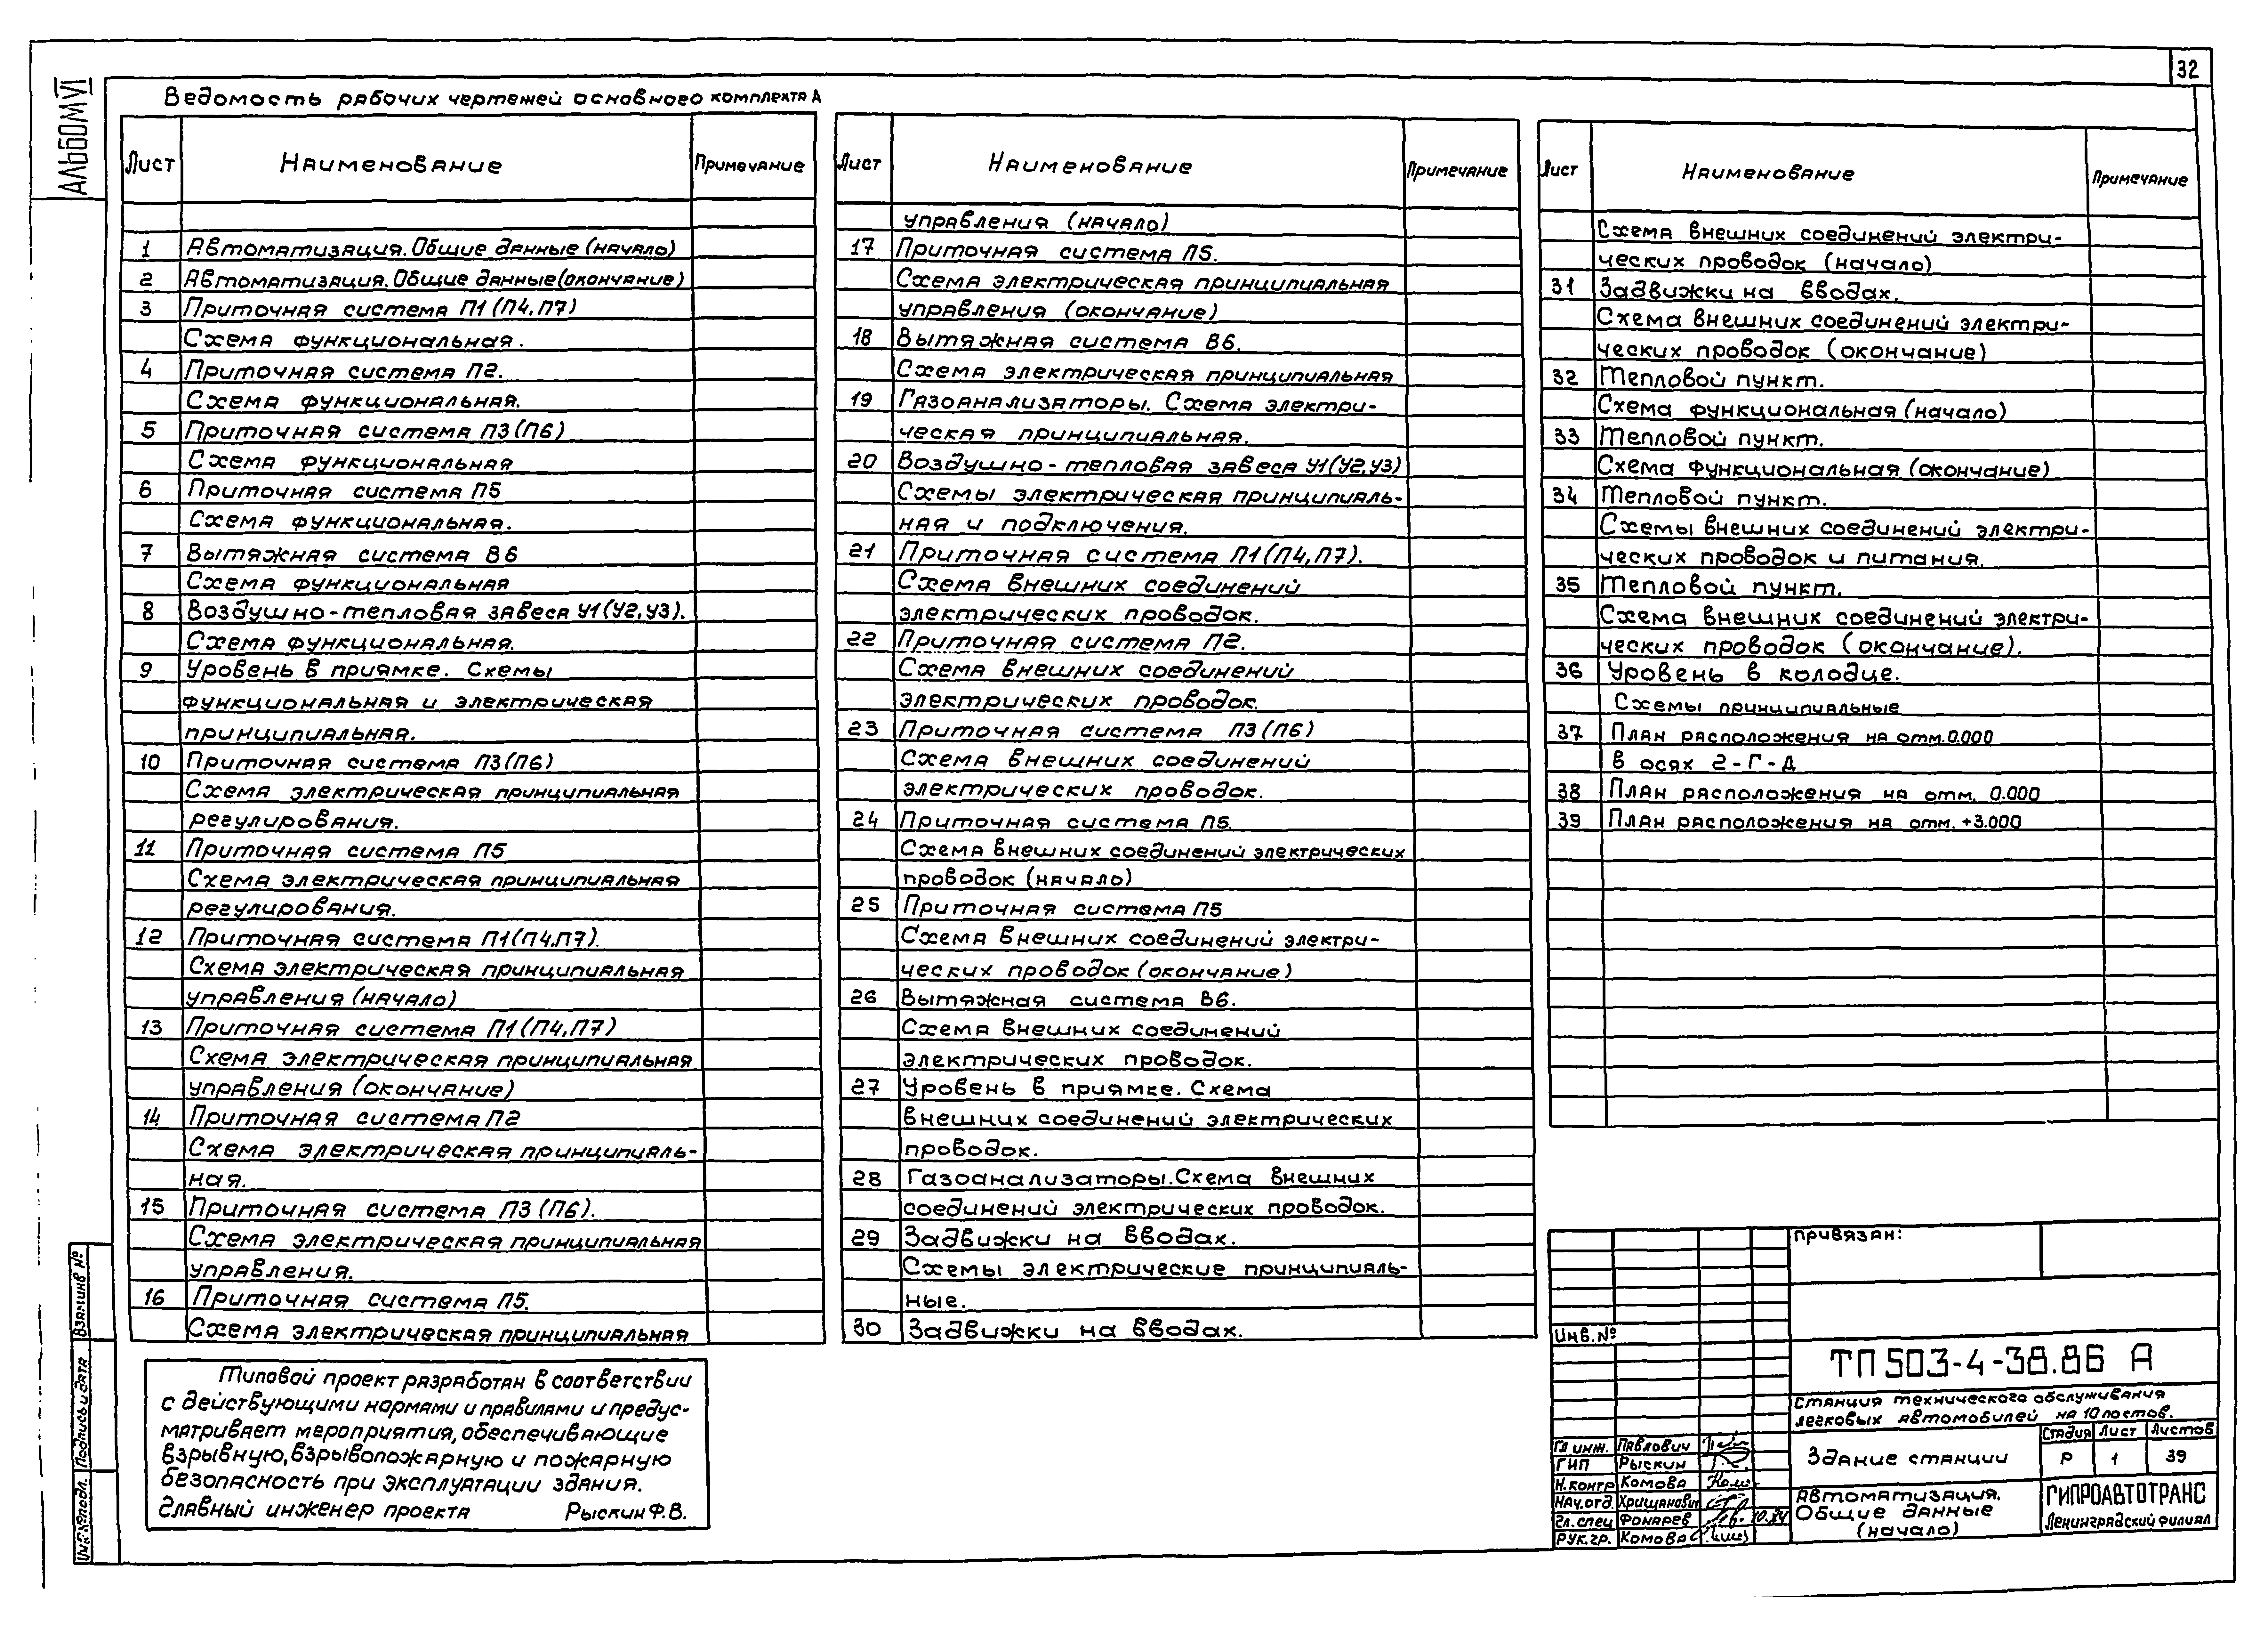 32
АЛЬБОМ VI
Ведомость рабочих чертежей основного комплекта А
Лист Наименование Примечание
1 Автоматизация. Общие данные (начало)
2 Автоматизация. Общие данные (окончание)
3 Приточная система П1 (П4, П7)
Схема функциональная.
4 Приточная система П2.
Схема функциональная.
5 Приточная система П3 (П6)
Схема функциональная
6 Приточная система П5
Схема функциональная.
7 Вытяжная система В6
Схема функциональная
8 Воздушно-тепловая завеса У1 (У2, У3).
Схема функциональная.
9 Уровень в приямке. Схемы
функциональная и электрическая
принципиальная.
10 Приточная система П3 (П6)
Схема электрическая принципиальная
регулирования.
11 Приточная система П5
Схема электрическая принципиальная
регулирования.
12 Приточная система П1 (П4, П7).
Схема электрическая принципиальная
управления (начало)
13 Приточная система П1 (П4, П7)
Схема электрическая принципиальная
управления (окончание)
14 Приточная система П2
Схема электрическая принципиаль-
ная.
15 Приточная система П3 (П6).
Схема электрическая принципиальная
управления.
16 Приточная система П5.
Схема электрическая принципиальная
Лист Наименование Примечание
управления (начало)
17 Приточная система П5.
Схема электрическая принципиальная
управления (окончание)
18 Вытяжная система В6.
Схема электрическая принципиальная
19 Газоанализаторы. Схема электри-
ческая принципиальная.
20 Воздушно-тепловая завеса У1 (У2, У3)
Схемы электрическая принципиаль-
ная и подключения.
21 Приточная система П1 (П4, П7).
Схема внешних соединений
электрических проводок.
22 Приточная система П2.
Схема внешних соединений
электрических проводок.
23 Приточная система П3 (П6)
Схема внешних соединений
электрических проводок.
24 Приточная система П5.
Схема внешних соединений электрических
проводок (начало)
25 Приточная система П5
Схема внешних соединений электри-
ческих проводок (окончание)
26 Вытяжная система В6.
Схема внешних соединений
электрических проводок.
27 Уровень в приямке. Схема
внешних соединений электрических
проводок.
28 Газоанализаторы. Схема внешних
соединений электрических проводок.
29 Задвижки на вводах.
Схемы электрические принципиаль-
ные.
30 Задвижки на вводах.
Лист Наименование Примечание
Схема внешних соединений электри-
ческих проводок (начало)
31 Задвижки на вводах.
Схема внешних соединений электри-
ческих проводок (окончание)
32 Тепловой пункт.
Схема функциональная (начало)
33 Тепловой пункт.
Схема функциональная (окончание)
34 Тепловой пункт.
Схемы внешних соединений электри-
ческих проводок и питания.
35 Тепловой пункт.
Схема внешних соединений электри-
ческих проводок (окончание).
36 Уровень в колодце.
Схемы принципиальные
37 План расположения на отм. 0.000
в осях 2-Г-Д
38 План расположения на отм. 0.000
39 План расположения на отм. +3.000
Типовой проект разработан в соответствии
с действующими нормами и правилами и предус-
матривает мероприятия, обеспечивающие
взрывную, взрывопожарную и пожарную
безопасность при эксплуатации здания.
Главный инженер проекта Рыскин Ф.В.
Взам инв №
Подпись и дата
Инв. № подл.
Привязан:
Инв. №
ТП 503-4-38.86 А
Станция технического обслуживания
легковых автомобилей на 10 постов.
Гл инж. Павлович
ГИП Рыскин
Н. контр Комова
Нач. отд. Хрищанович
Гл. спец Фонарев 10.84
Рук. гр. Комова
Здание станции
Стадия Лист Листов
Р 1 39
Автоматизация.
Общие данные
(начало)
ГИПРОАВТОТРАНС
Ленинградский филиал